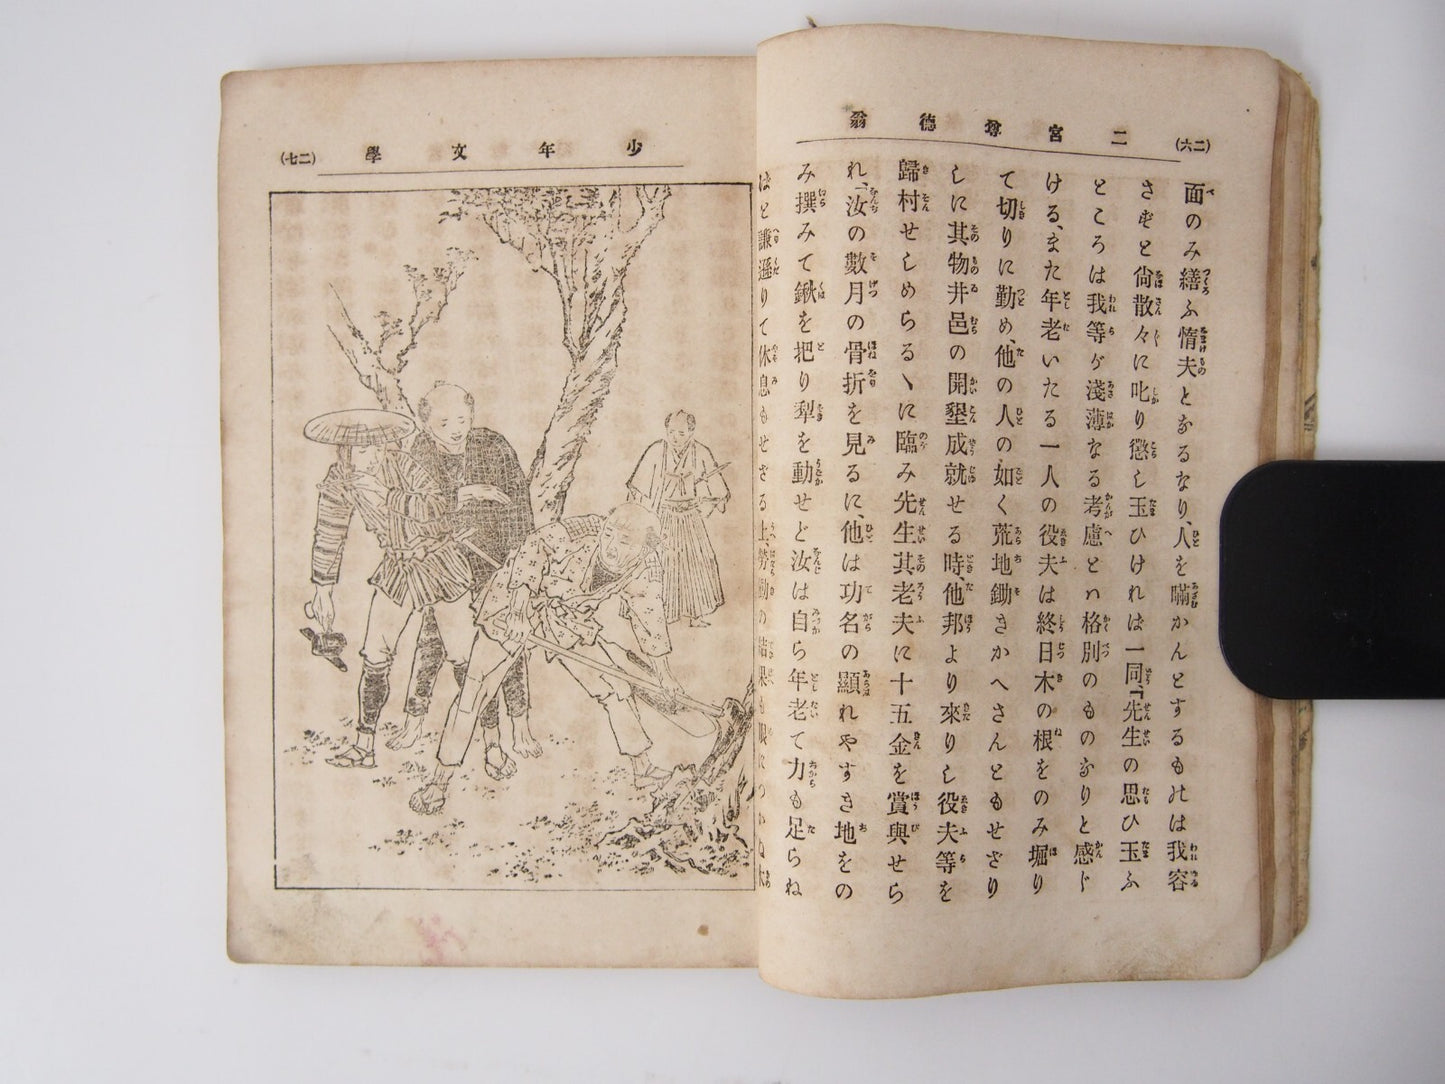 (二六)
二宮尊德翁
面のみ繕ふ惰夫となるなり、人を瞞かんとするものは我容
さずと尙散々に叱り懲し玉ひければ一同、「先生の思ひ玉ふ
ところは我等が淺薄なる考慮とハ格別のものなりと感じ
ける、また年老いたる一人の役夫は終日木の根をのみ堀り
て切りに勤め、他の人の如く荒地鋤きかへさんともせざり
しに其物井邑の開墾成就せる時、他邦より來りし役夫等を
歸村せしめらるゝに臨み先生其老夫に十五金を賞與せら
れ、「汝の數月の骨折を見るに、他は功名の顯れやすき地をの
み撰みて鍬を把り犁を動せど汝は自ら年老て力も足らね
ばと謙遜りて休息もせざる上、勞働の結果も眼につかぬ木
少年文學
(二七)